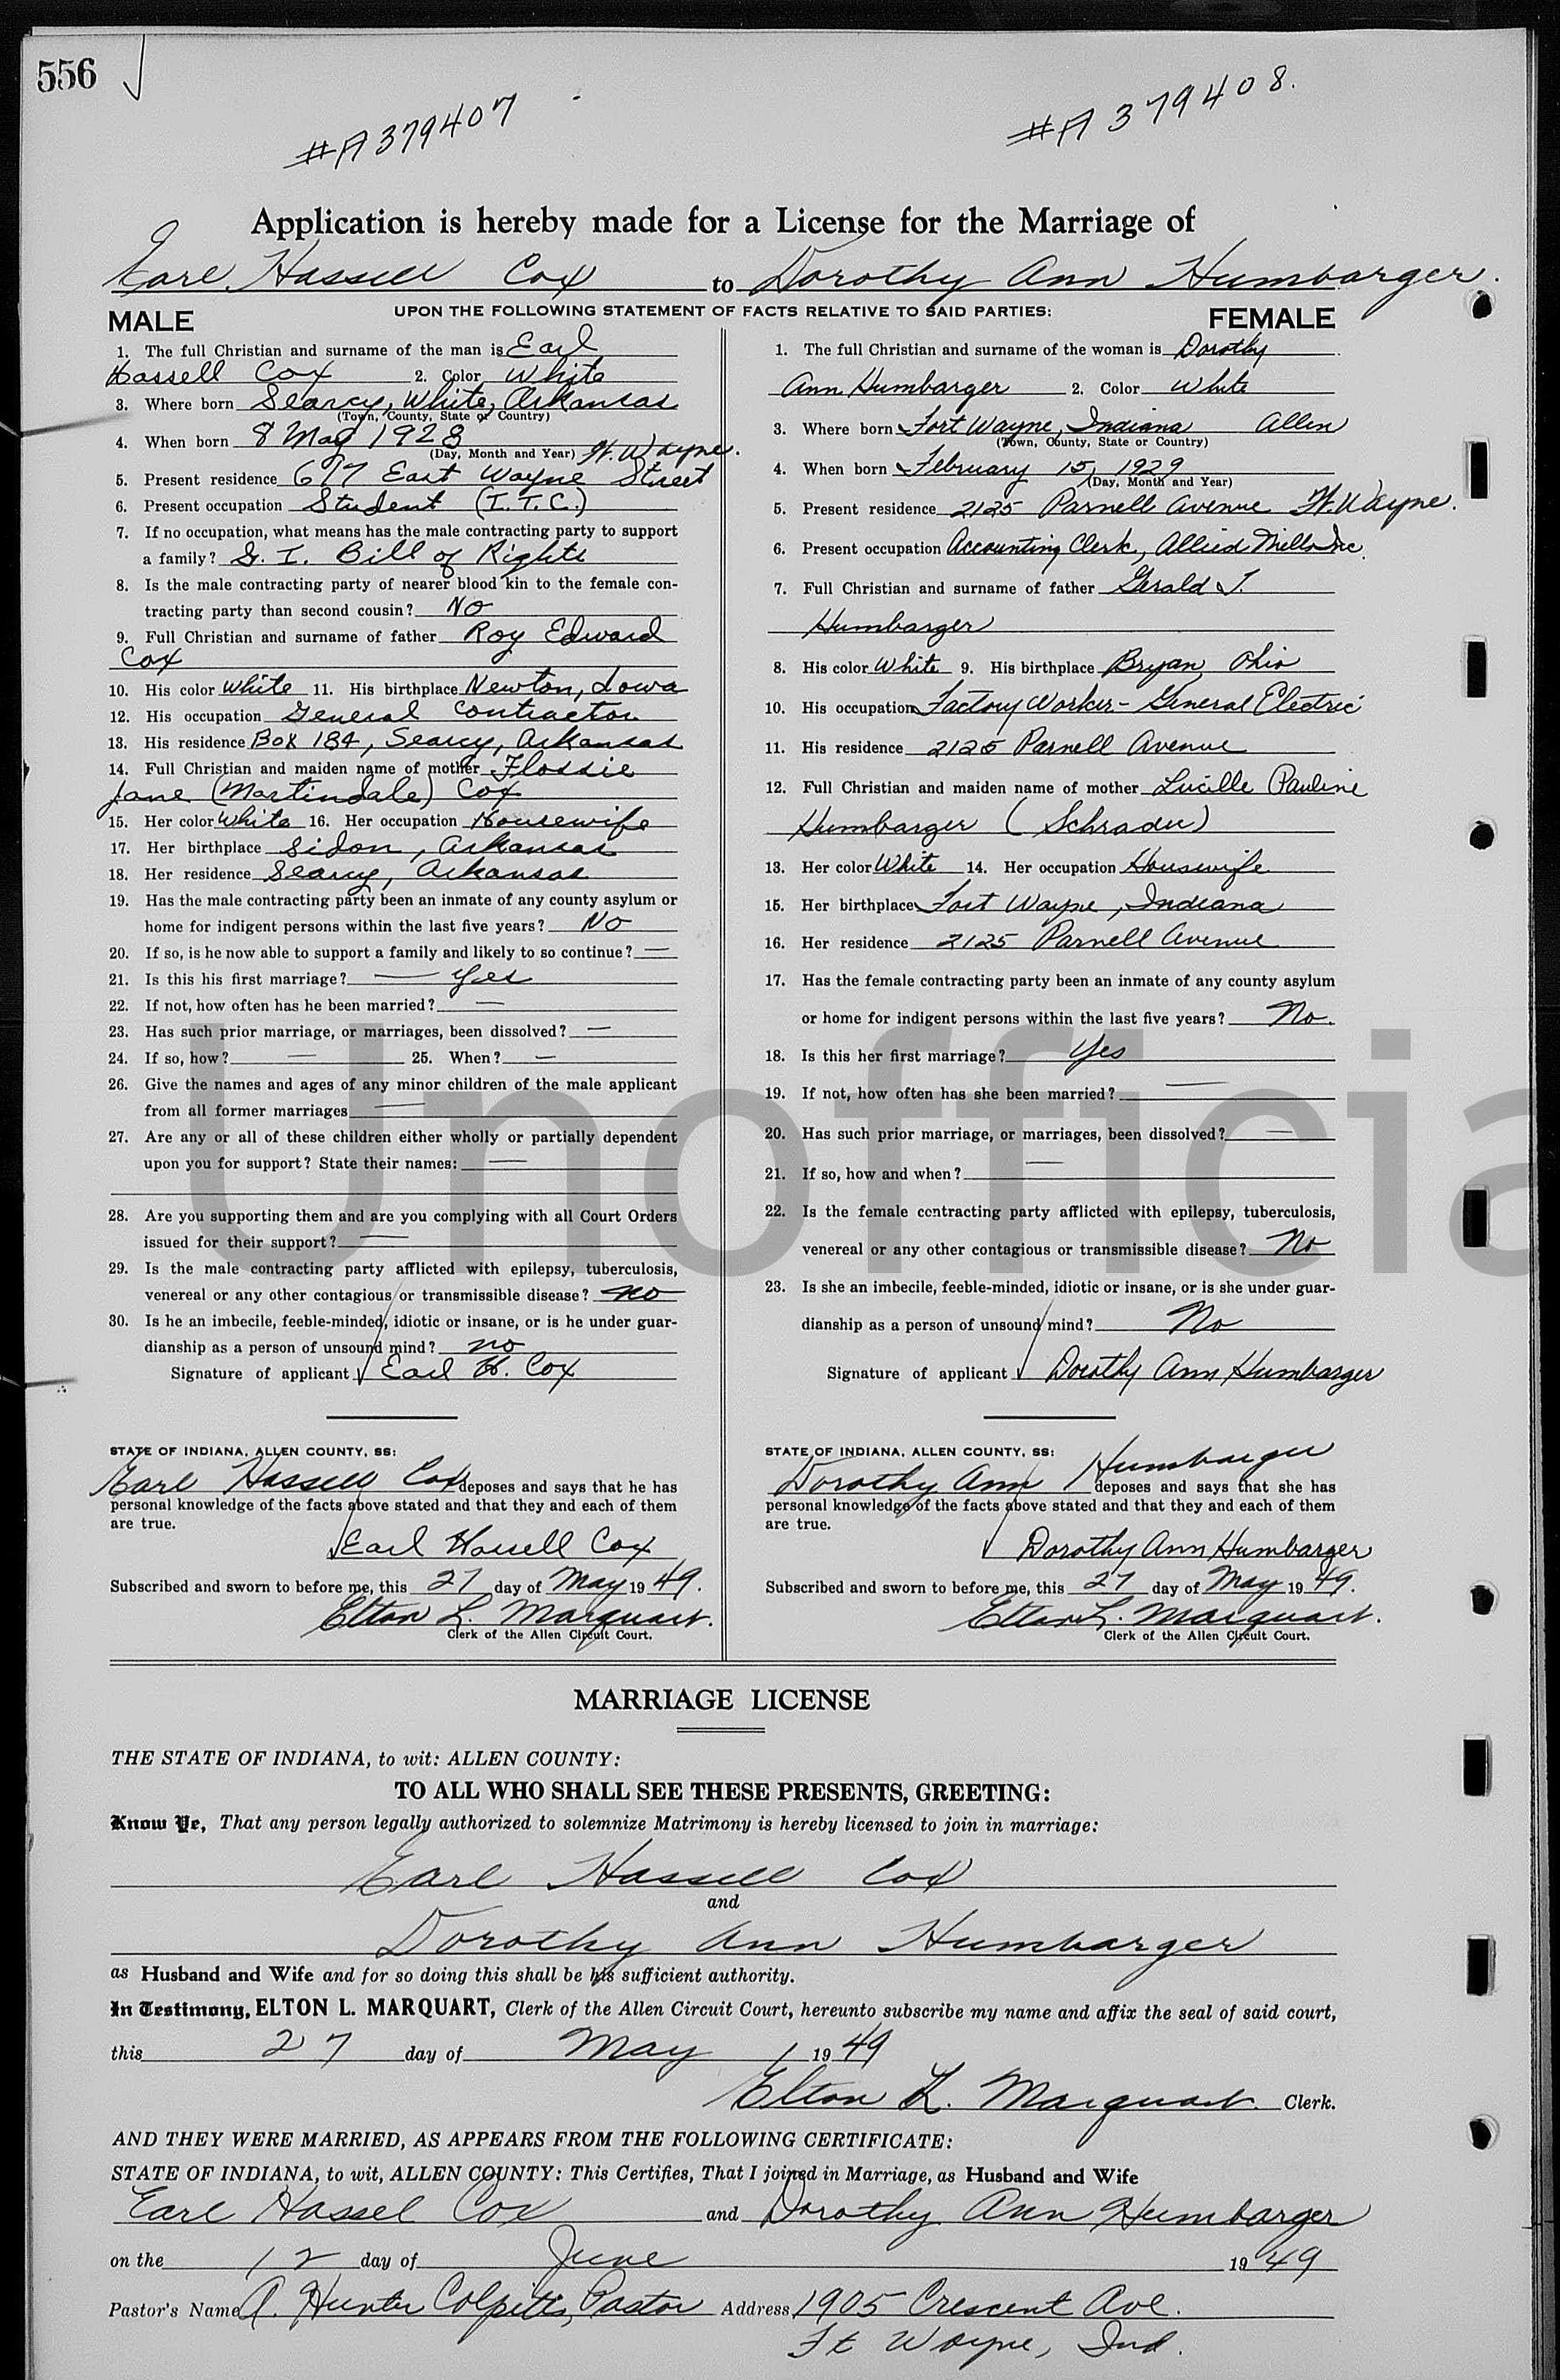 556
#A379407
#A379408.
Application is hereby made for a License for the Marriage of
Earl Hassell Cox to Dorothy Ann Humbarger.
UPON THE FOLLOWING STATEMENT OF FACTS RELATIVE TO SAID PARTIES:
MALE
1. The full Christian and surname of the man is Earl
Hassell Cox 2. Color White
3. Where born Searcy, White, Arkansas
(Town, County, State or Country)
4. When born 8 May 1928
(Day, Month and Year) Ft. Wayne.
5. Present residence 617 East Wayne Street
6. Present occupation Student (I.T.C.)
7. If no occupation, what means has the male contracting party to support
a family? G. I. Bill of Rights
8. Is the male contracting party of nearer blood kin to the female con-
tracting party than second cousin? No
9. Full Christian and surname of father Roy Edward
Cox
10. His color White 11. His birthplace Newton, Iowa
12. His occupation General Contractor
13. His residence Box 184, Searcy, Arkansas
14. Full Christian and maiden name of mother Flossie
Jane (Martindale) Cox
15. Her color White 16. Her occupation Housewife
17. Her birthplace Sidon, Arkansas
18. Her residence Searcy, Arkansas
19. Has the male contracting party been an inmate of any county asylum or
home for indigent persons within the last five years? No
20. If so, is he now able to support a family and likely to so continue? —
21. Is this his first marriage? — Yes
22. If not, how often has he been married? —
23. Has such prior marriage, or marriages, been dissolved? —
24. If so, how? — 25. When? —
26. Give the names and ages of any minor children of the male applicant
from all former marriages —
27. Are any or all of these children either wholly or partially dependent
upon you for support? State their names: —
28. Are you supporting them and are you complying with all Court Orders
issued for their support? —
29. Is the male contracting party afflicted with epilepsy, tuberculosis,
venereal or any other contagious or transmissible disease? no
30. Is he an imbecile, feeble-minded, idiotic or insane, or is he under guar-
dianship as a person of unsound mind? no
Signature of applicant Earl H. Cox
FEMALE
1. The full Christian and surname of the woman is Dorothy
Ann Humbarger 2. Color White
3. Where born Fort Wayne, Indiana Allen
(Town, County, State or Country)
4. When born February 15, 1929
(Day, Month and Year)
5. Present residence 2125 Parnell Avenue Ft. Wayne.
6. Present occupation Accounting Clerk, Allied Mills Inc.
7. Full Christian and surname of father Gerald J.
Humbarger
8. His color White 9. His birthplace Bryan, Ohio
10. His occupation Factory Worker - General Electric
11. His residence 2125 Parnell Avenue
12. Full Christian and maiden name of mother Lucille Pauline
Humbarger (Schrader)
13. Her color White 14. Her occupation Housewife
15. Her birthplace Fort Wayne, Indiana
16. Her residence 2125 Parnell Avenue
17. Has the female contracting party been an inmate of any county asylum
or home for indigent persons within the last five years? No.
18. Is this her first marriage? Yes
19. If not, how often has she been married? —
20. Has such prior marriage, or marriages, been dissolved? —
21. If so, how and when? —
22. Is the female contracting party afflicted with epilepsy, tuberculosis,
venereal or any other contagious or transmissible disease? No
23. Is she an imbecile, feeble-minded, idiotic or insane, or is she under guar-
dianship as a person of unsound mind? No
Signature of applicant Dorothy Ann Humbarger
STATE OF INDIANA, ALLEN COUNTY, SS:
Earl Hassell Cox deposes and says that he has
personal knowledge of the facts above stated and that they and each of them
are true.
Earl Hassell Cox
Subscribed and sworn to before me, this 27 day of May 1949.
Elton L. Marquart.
Clerk of the Allen Circuit Court.
STATE OF INDIANA, ALLEN COUNTY, SS:
Dorothy Ann Humbarger deposes and says that she has
personal knowledge of the facts above stated and that they and each of them
are true.
Dorothy Ann Humbarger
Subscribed and sworn to before me, this 27 day of May 1949.
Elton L. Marquart.
Clerk of the Allen Circuit Court.
Unofficia
MARRIAGE LICENSE
THE STATE OF INDIANA, to wit: ALLEN COUNTY:
TO ALL WHO SHALL SEE THESE PRESENTS, GREETING:
Know Ye, That any person legally authorized to solemnize Matrimony is hereby licensed to join in marriage:
Earl Hassell Cox
and
Dorothy Ann Humbarger
as Husband and Wife and for so doing this shall be his sufficient authority.
In Testimony, ELTON L. MARQUART, Clerk of the Allen Circuit Court, hereunto subscribe my name and affix the seal of said court,
this 27 day of May 1949
Elton L. Marquart. Clerk.
AND THEY WERE MARRIED, AS APPEARS FROM THE FOLLOWING CERTIFICATE:
STATE OF INDIANA, to wit, ALLEN COUNTY: This Certifies, That I joined in Marriage, as Husband and Wife
Earl Hassel Cox and Dorothy Ann Humbarger
on the 12 day of June 1949
Pastor's Name A. Hunter Colpitts, Pastor Address 1905 Crescent Ave.
Ft Wayne, Ind.